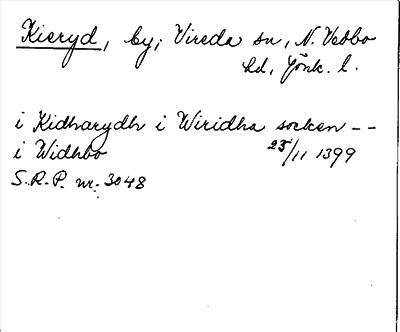 Kieryd, by; Vireda sn, N. Vedbo
hd, Jönk. l.
i Kidharydh i Wiridha socken --
i Widhbo 25/11 1399
S.R.P. nr. 3048